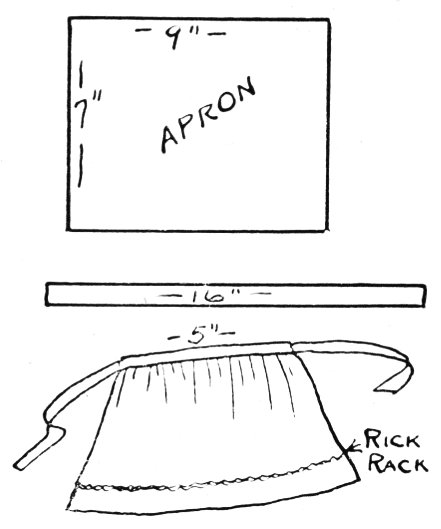 - 9" -
7"
APRON
- 16" -
- 5" -
RICK
RACK